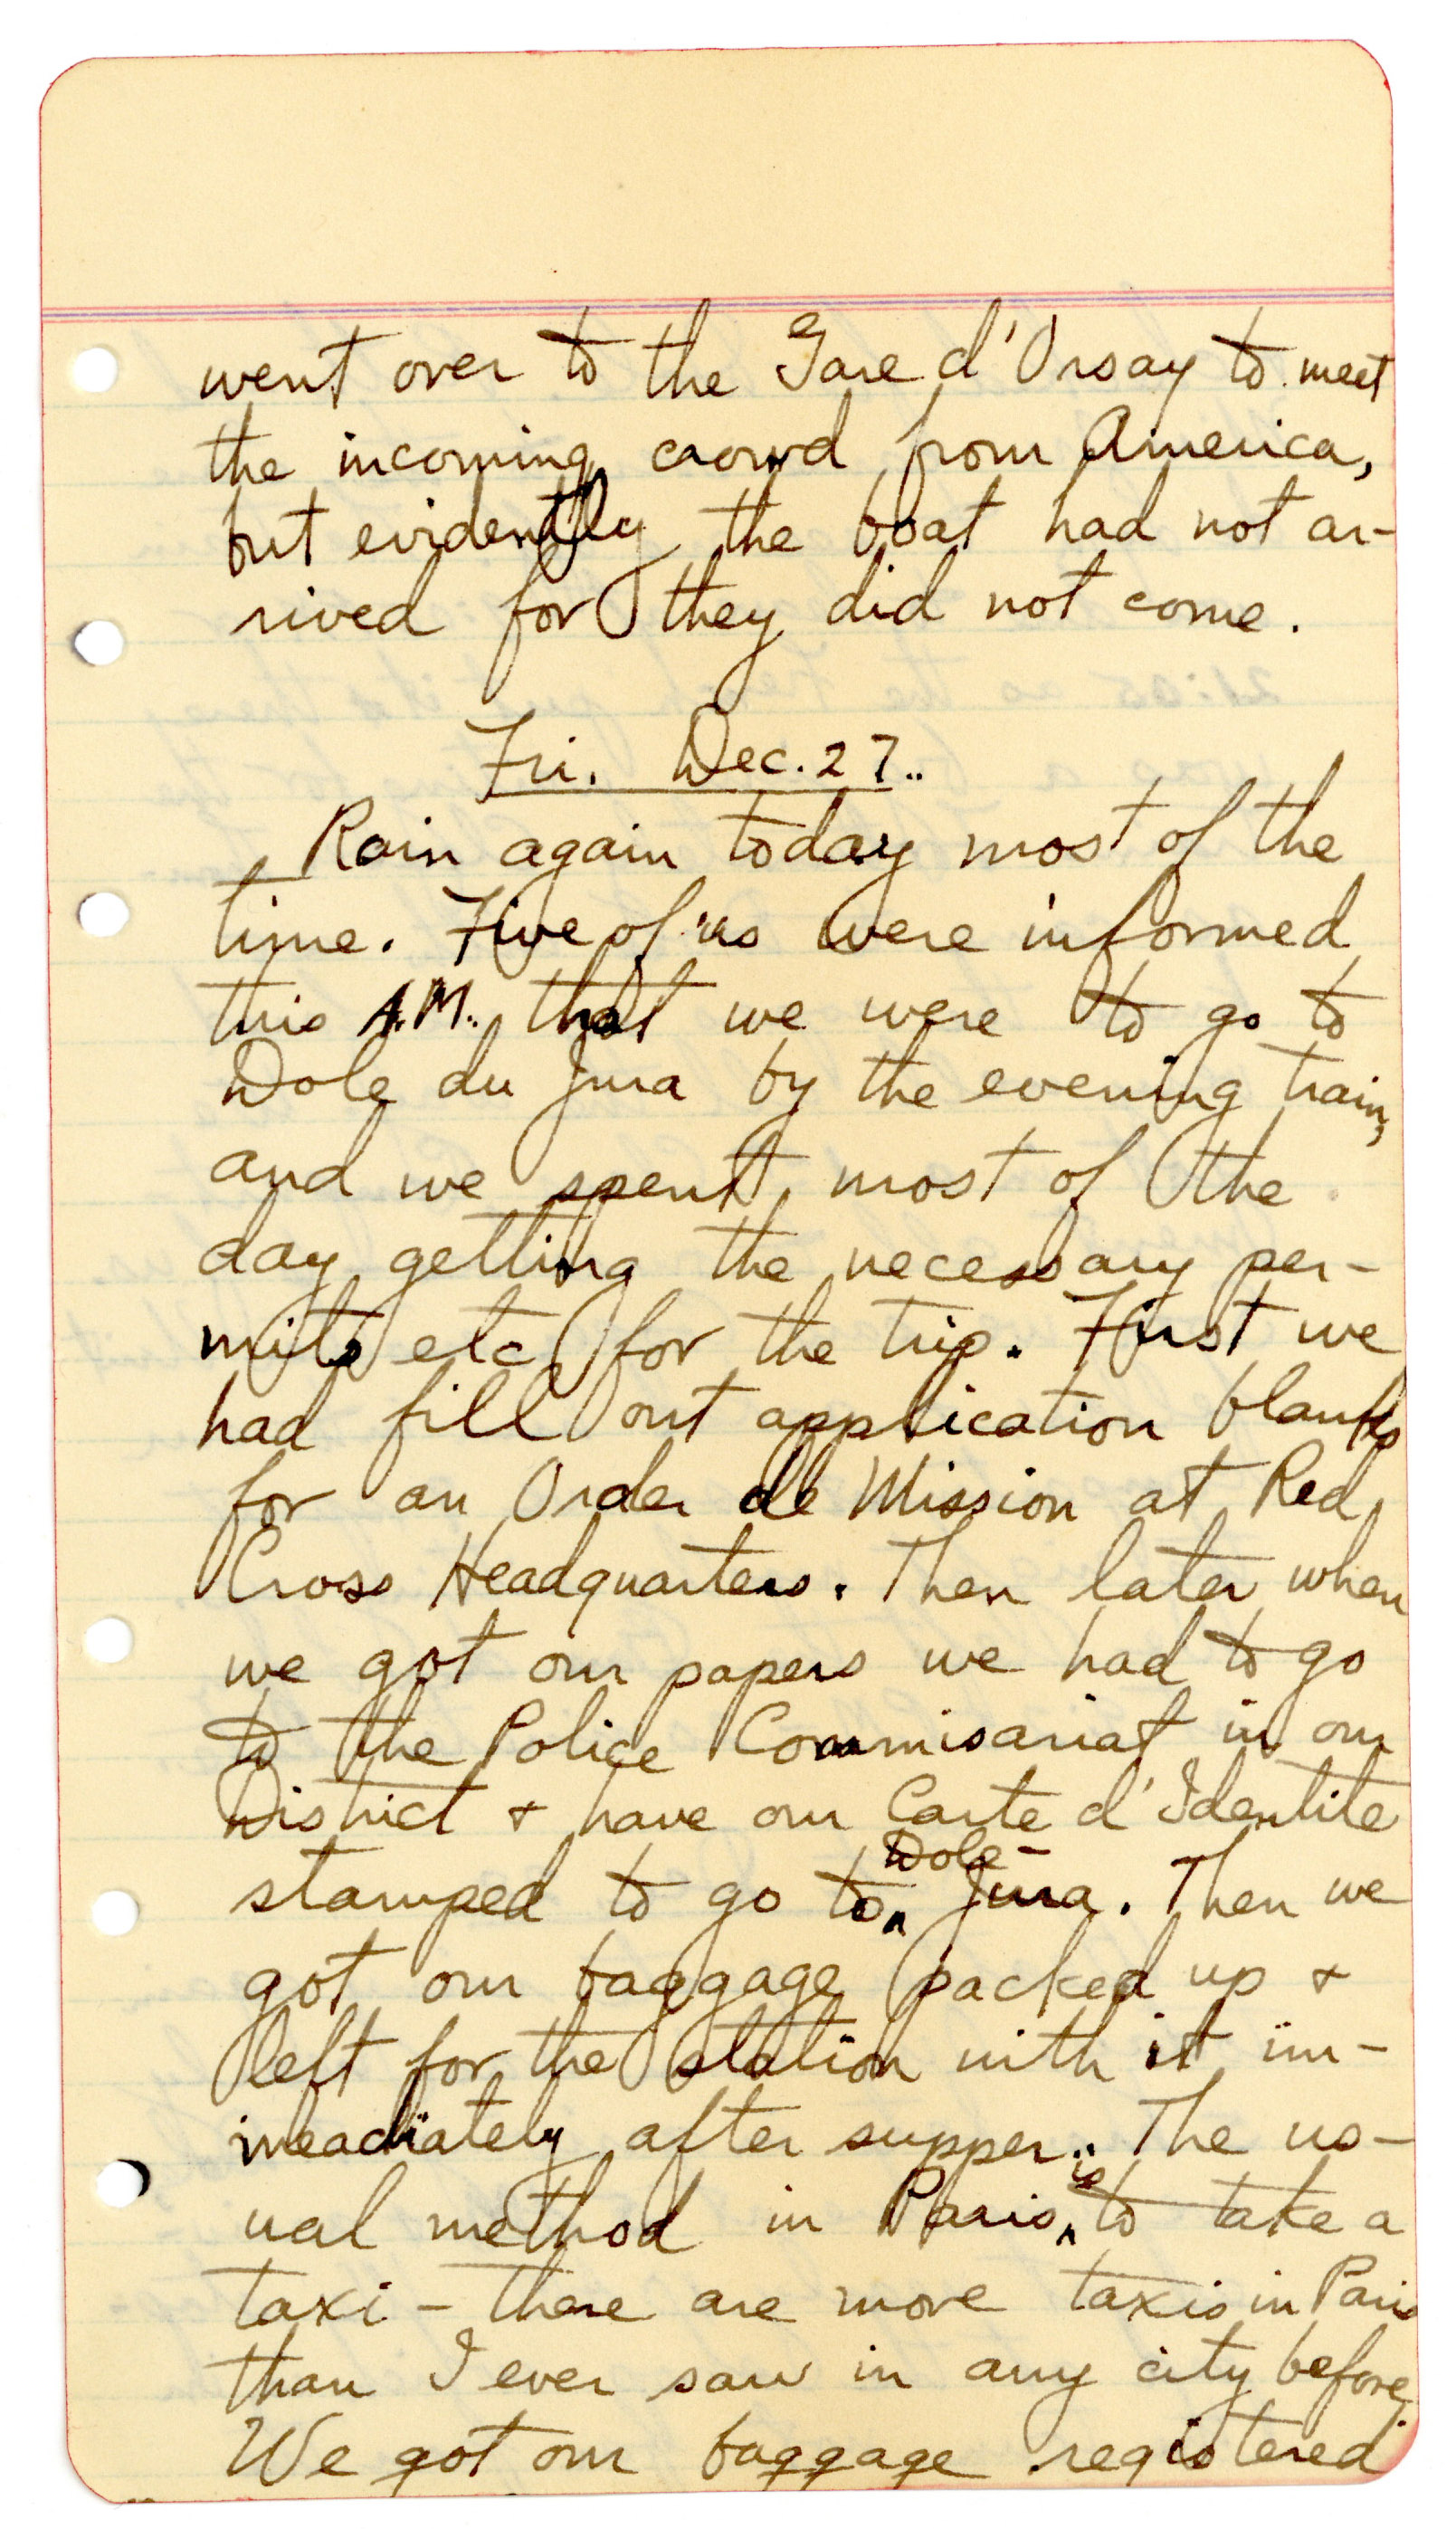 went over to the Gare d'Orsay to meet
the incoming crowd from America,
but evidently the boat had not ar-
rived for they did not come.
Fri. Dec. 27..
Rain again today most of the
time. Five of us were informed
this A.M. that we were to go to
Dole du Jura by the evening train,
and we spent most of the
day getting the necessary per-
mits etc for the trip. First we
had fill out application blanks
for an Order de Mission at Red
Cross Headquarters. Then later when
we got our papers we had to go
to the Police Commisariat in our
District & have our Carte d'Identite
Dole-
stamped to go to ‸ Jura. Then we
got our baggage packed up &
left for the station with it im-
meadiately after supper. The us-
is
ual method in Paris ‸ to take a
taxi - there are more taxis in Paris
than I ever saw in any city before.
We got our baggage registered